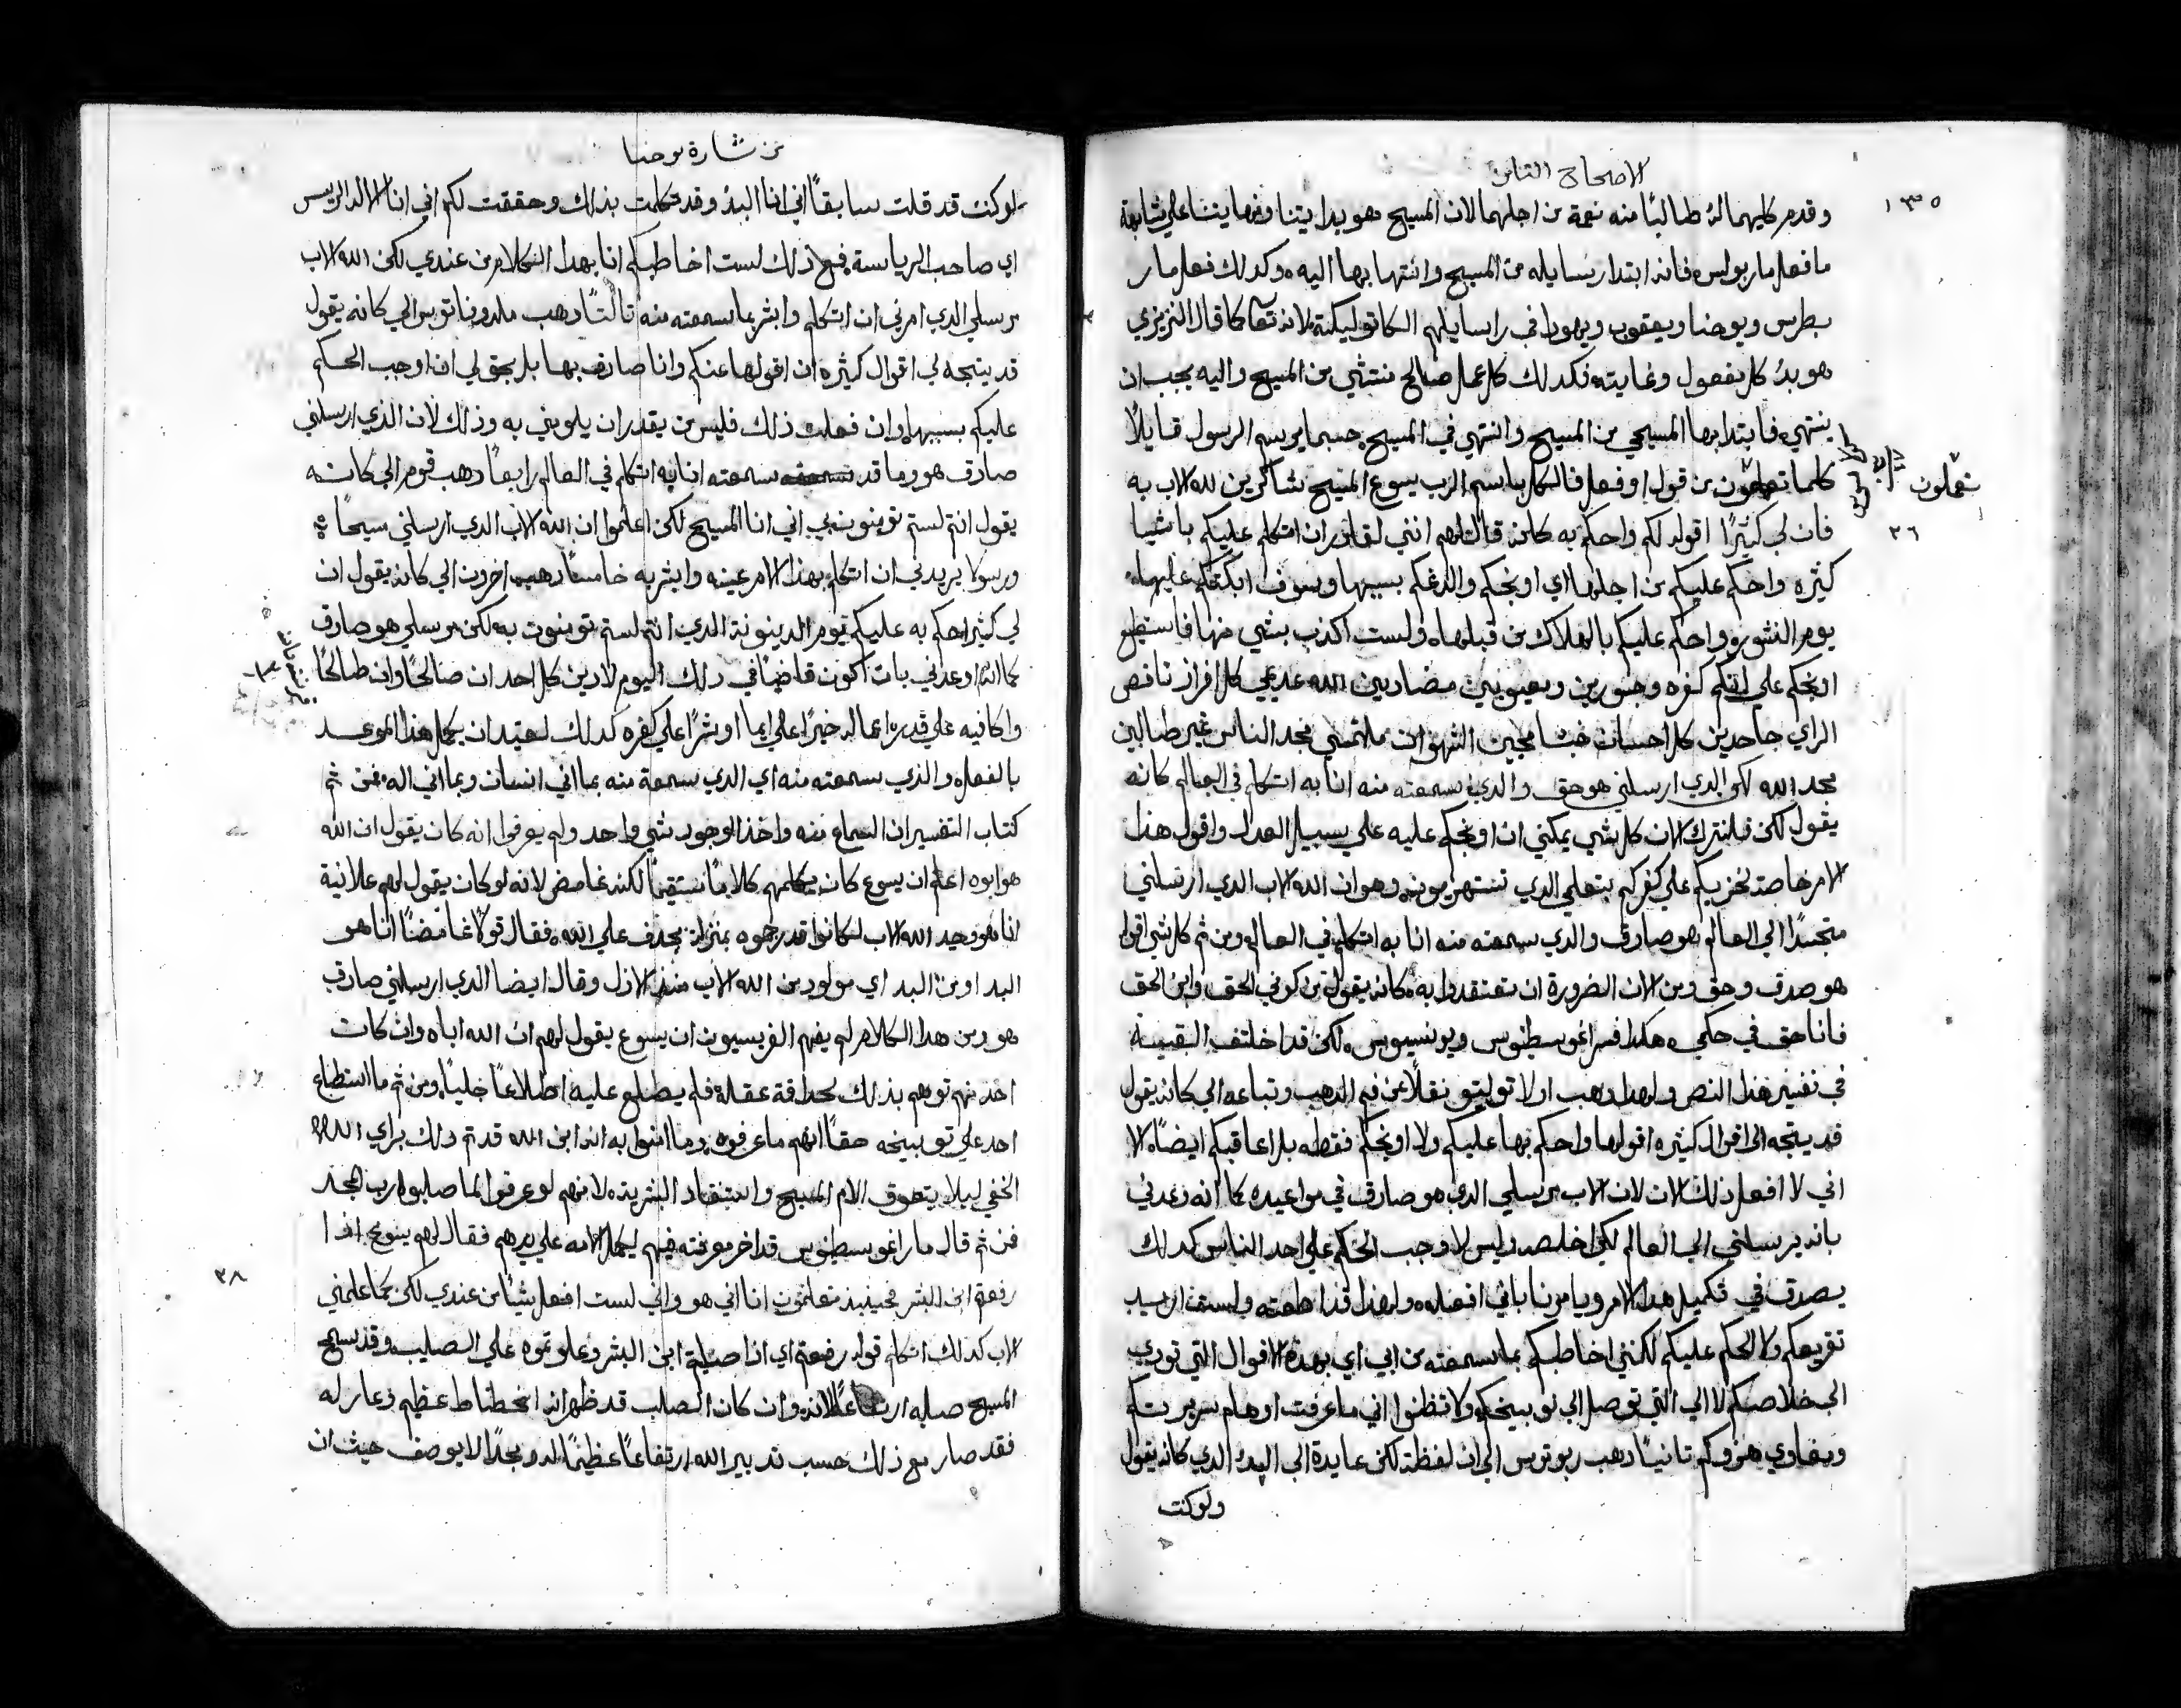 الاصحاح الثامن
١٣٥
وقدم كليهما له طالبًا منه نعمة من اجلهما لان المسيح هو بدايتنا ونهايتنا علي مشابهة
ما فعل مار بولس فانه ابتدا رسايله من المسيح وانتها بها اليه وكدلك فعل مار
بطرس ويوحنا ويعقوب ويهودا في رسايلهم الكاتوليكية لانه كما قال النزينزي
هو بدؤ كل مفعول وغايته فكدلك كل عمل صالح منتشي من المسيح واليه يجب ان
ينتهي فابتدا بها المسيحي من المسيح وانتهي في المسيح حسبما يرسم الرسول قايلاً
كلما تعملون من قول او فعل فالكل باسم الرب يسوع المسيح شاكرين لله الاب به
تعملون
٢٦
فان لي كثيرًا اقوله لكم واحكم به كانه قال لهم انني لقادر ان اتكلم عليكم باشيا
كثيره واحكم عليكم من اجلها اي اوبخكم والدغكم بسببها وسوف ابكتكم عليها
يوم النشور واحكم عليكم بالهلاك من قبلها ولست اكذب بشي منها فاستطيع
اوبخكم علي انكم كفره وجسورين ومضادين الله عديمي كل افراز ناقصي
الراي جاحدين كل احسان خبثا محبين الشهوات ملتمسي مجد الناس غير طالبين
مجد الله لكن الدي ارسلني هو حق والدي سمعته منه انا به اتكلم في العالم كانه
يقول لكن فلنترك الان كل شي يمكني ان اوبخكم عليه علي سبيل العدل واقول هذا
الامر خاصة لخزيكم علي كفركم بتعلمي الدي تستهزيون به وهو ان الله الاب الدي ارسلني
متجسدًا الي العالم هو صادق والدي سمعته منه انا به اتكلم في العالم ومن ثم كل شي اقوله
هو صدق وحق ومن الان الضرورة ان تعتقدوا به كانه يقول من كوني الحق وابن الحق
فانا حق في حكمي هكدا فسر اغوسطينوس ويونسيوس لكن قد اختلف البقية
في تفسير هذا النص ولهدا دهب اولا توليتو نقلاً عن فم الدهب وتباعه الي كانه يقول
قد يتجه الي اقوال كثيره اقولها واحكم بها عليكم ولا اوبخكم فقط بل اعاقبكم ايضًا الا
اني لا افعل ذلك الان لان الاب مرسلي الدي هو صادق في مواعيده كما انه وعدني
بانه يرسلني الي العالم لكي اخلصه وليس لاوجب الحكم علي احد الناس كدلك
يصدق في تكميل هدا الامر ويامرنا باني افعله ولهدا قد اطعته ولست اريد
تقريعكم ولا الحكم عليكم لكنني اخاطبكم بما سمعته من ابي اي بهده الاقوال التي تودي
الي خلاصكم لا الي التي توصل الي توبيخكم ولا تظنوا اني ما عرفت اوهام سريرتكم
هزوكم تانيًا دهب ربوترس الي ان لفظة لكن عايدة الي البدؤ الدي كانه يقول
ولوكنت
من بشارة يوحنا
لوكنت قد قلت سابقًا اني انا البدؤ وقد تكلمت بذلك وحققت لكم اني انا الاله الرييس
اي صاحب الرياسة فمع ذلك لست اخاطبكم انا بهدا الكلام من عندي لكن الله الاب
مرسلي الدي امرني ان اتكلم وابشر بما سمعته منه ثالثًا دهب ملدوناتوس الي كانه يقول
قد يتجه لي اقوال كثيره ان اقولها عنكم وانا صادق بها بل يحق لي ان اوجب الحكم
عليكم بسببها وان فعلت ذلك فليس من يقدر ان يلومني به وذلك لان الذي ارسلني
صادق هو وما قد سمعته انا به اتكلم في العالم رابعًا دهب قوم الي كانه
يقول انتم لستم تومنون بي اني انا المسيح لكن اعلموا ان الله الاب الدي ارسلني مسيحًا
ورسولا يريدني ان اتكلم بهذا الامر عينه وابشر به خامسًا دهب اخرون الي كانه يقول ان
لي كثير احكم به عليكم يوم الدينونة الدي انتم لستم تومنون به لكن مرسلي هو صادق
كما انه اوعدني بان اكون قاضيًا في دلك اليوم لادين كل احد ان صالحًا وان طالحًا
واكافيه علي قدره اعماله خيرًا علي ايما او شرًا علي كفره كدلك لعتيد ان يكمل هذا الموعد
بالفعل والذي سمعته منه اي الدي سمعه منه بما اني انسان وبما اني اله فمن ثم
كتاب التفسير ان السماع منه واخذ الوجود شي واحد ولم يعرفوا انه كان يقول ان الله
هو ابوه اعلم ان يسوع كان يكلمهم كلامًا مستقيمًا لكنه غامض لانه لو كان يقول لهم علانية
انا هو وحيد الله الاب لكانوا قد رجموه بمنزلة يجدف علي الله فقال قولاً غامضًا انا هو
البدا ومن البدا اي مولود من الله الاب منذ الازل وقال ايضا الذي ارسلني صادق
هو ومن هدا الكلام لم يفهم الفريسيون ان يسوع يقول لهم ان الله اباه وان كان
احد منهم توهم بذلك لحداقة عقله فلم يطلع عليه اطلاعًا جليًا ومن ثم ما استطاع
احد علي توبيخه حقًا انهم ما عرفوه وما امنوا به انه ابن الله قد تم دلك براي الله
الخفي ليلا يتعوق الام المسيح وافتقاد البشرية لانهم لو عرفوا لما صلبوا رب المجد
فمن ثم قال مار اغوسطينوس قد اخر معرفته فيهم ليكمل الامه علي يدهم فقال لهم يسوع اذا
٢٨
رفعتم ابن البشر فحينيذ تعلمون انا اني هو واني لست افعل شيًا من عندي لكن كما علمني
الاب كدلك اتكلم قوله رفعتم اي اذا صلبتم ابن البشر وعلوتموه علي الصليب وقد سمي
المسيح صلبه ارتفاعًا لانه وان كان الصلب قد ظهر انه انحطاط عظيم وعار له
فقد صار مع ذلك حسب تدبير الله ارتفاعًا عظيمًا له ومجدًا لا يوصف حيث ان